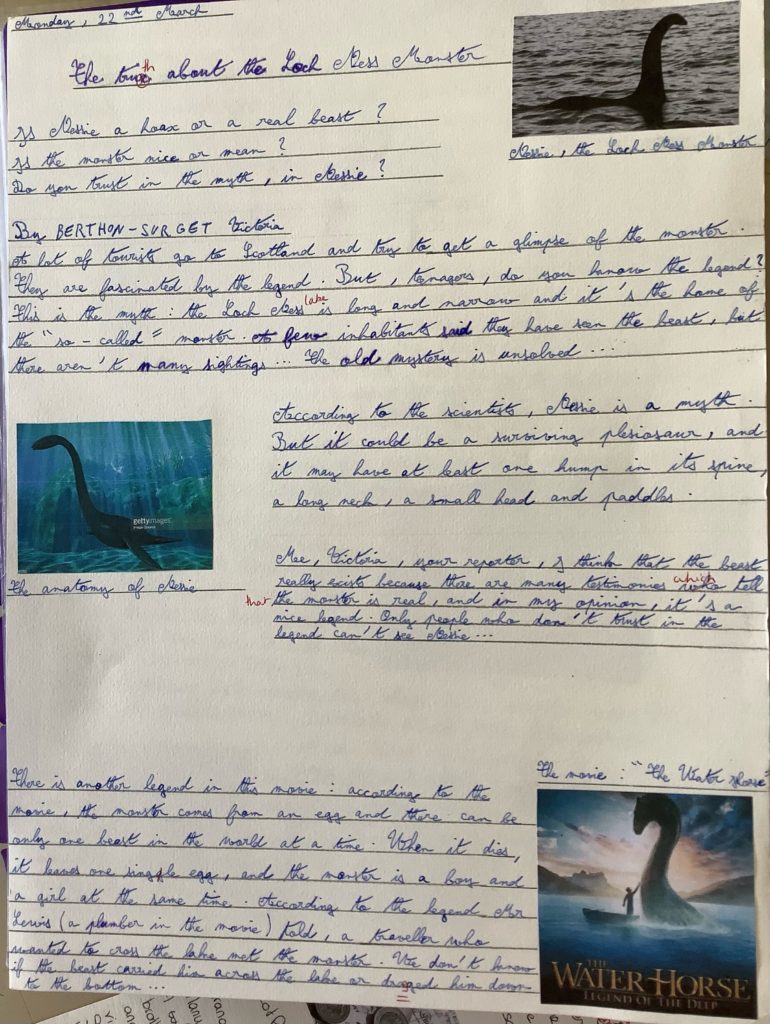 Monday, 22nd March
The truth about the Loch Ness Monster
Is Nessie a hoax or a real beast ?
Is the monster nice or mean ?
Do you trust in the myth, in Nessie ?
Nessie, the Loch Ness Monster
By BERTHON-SURGET Victoria
A lot of tourists go to Scotland and try to get a glimpse of the monster.
They are fascinated by the legend. But, teenagers, do you know the legend?
This is the myth : the Loch Ness lake is long and narrow and it's the home of
the "so-called" monster. A few inhabitants said they have seen the beast, but
there aren't many sightings... The old mystery is unsolved...
According to the scientists, Nessie is a myth.
But it could be a surviving plesiosaur, and
it may have at least one hump in its spine,
a long neck, a small head and paddles.
gettyimages
The anatomy of Nessie
Me, Victoria, your reporter, I think that the beast
really exists because there are many testimonies which tell
that the monster is real, and in my opinion, it's a
nice legend. Only people who don't trust in the
legend can't see Nessie...
The movie : "The Water Horse"
There is another legend in this movie : according to the
movie, the monster comes from an egg and there can be
only one beast in the world at a time. When it dies,
it leaves one single egg, and the monster is a boy and
a girl at the same time. According to the legend Mr
Lewis (a plumber in the movie) told, a traveller who
wanted to cross the lake met the monster. We don't know
if the beast carried him across the lake or dragged him down
to the bottom...
THE
WATER HORSE
LEGEND OF THE DEEP